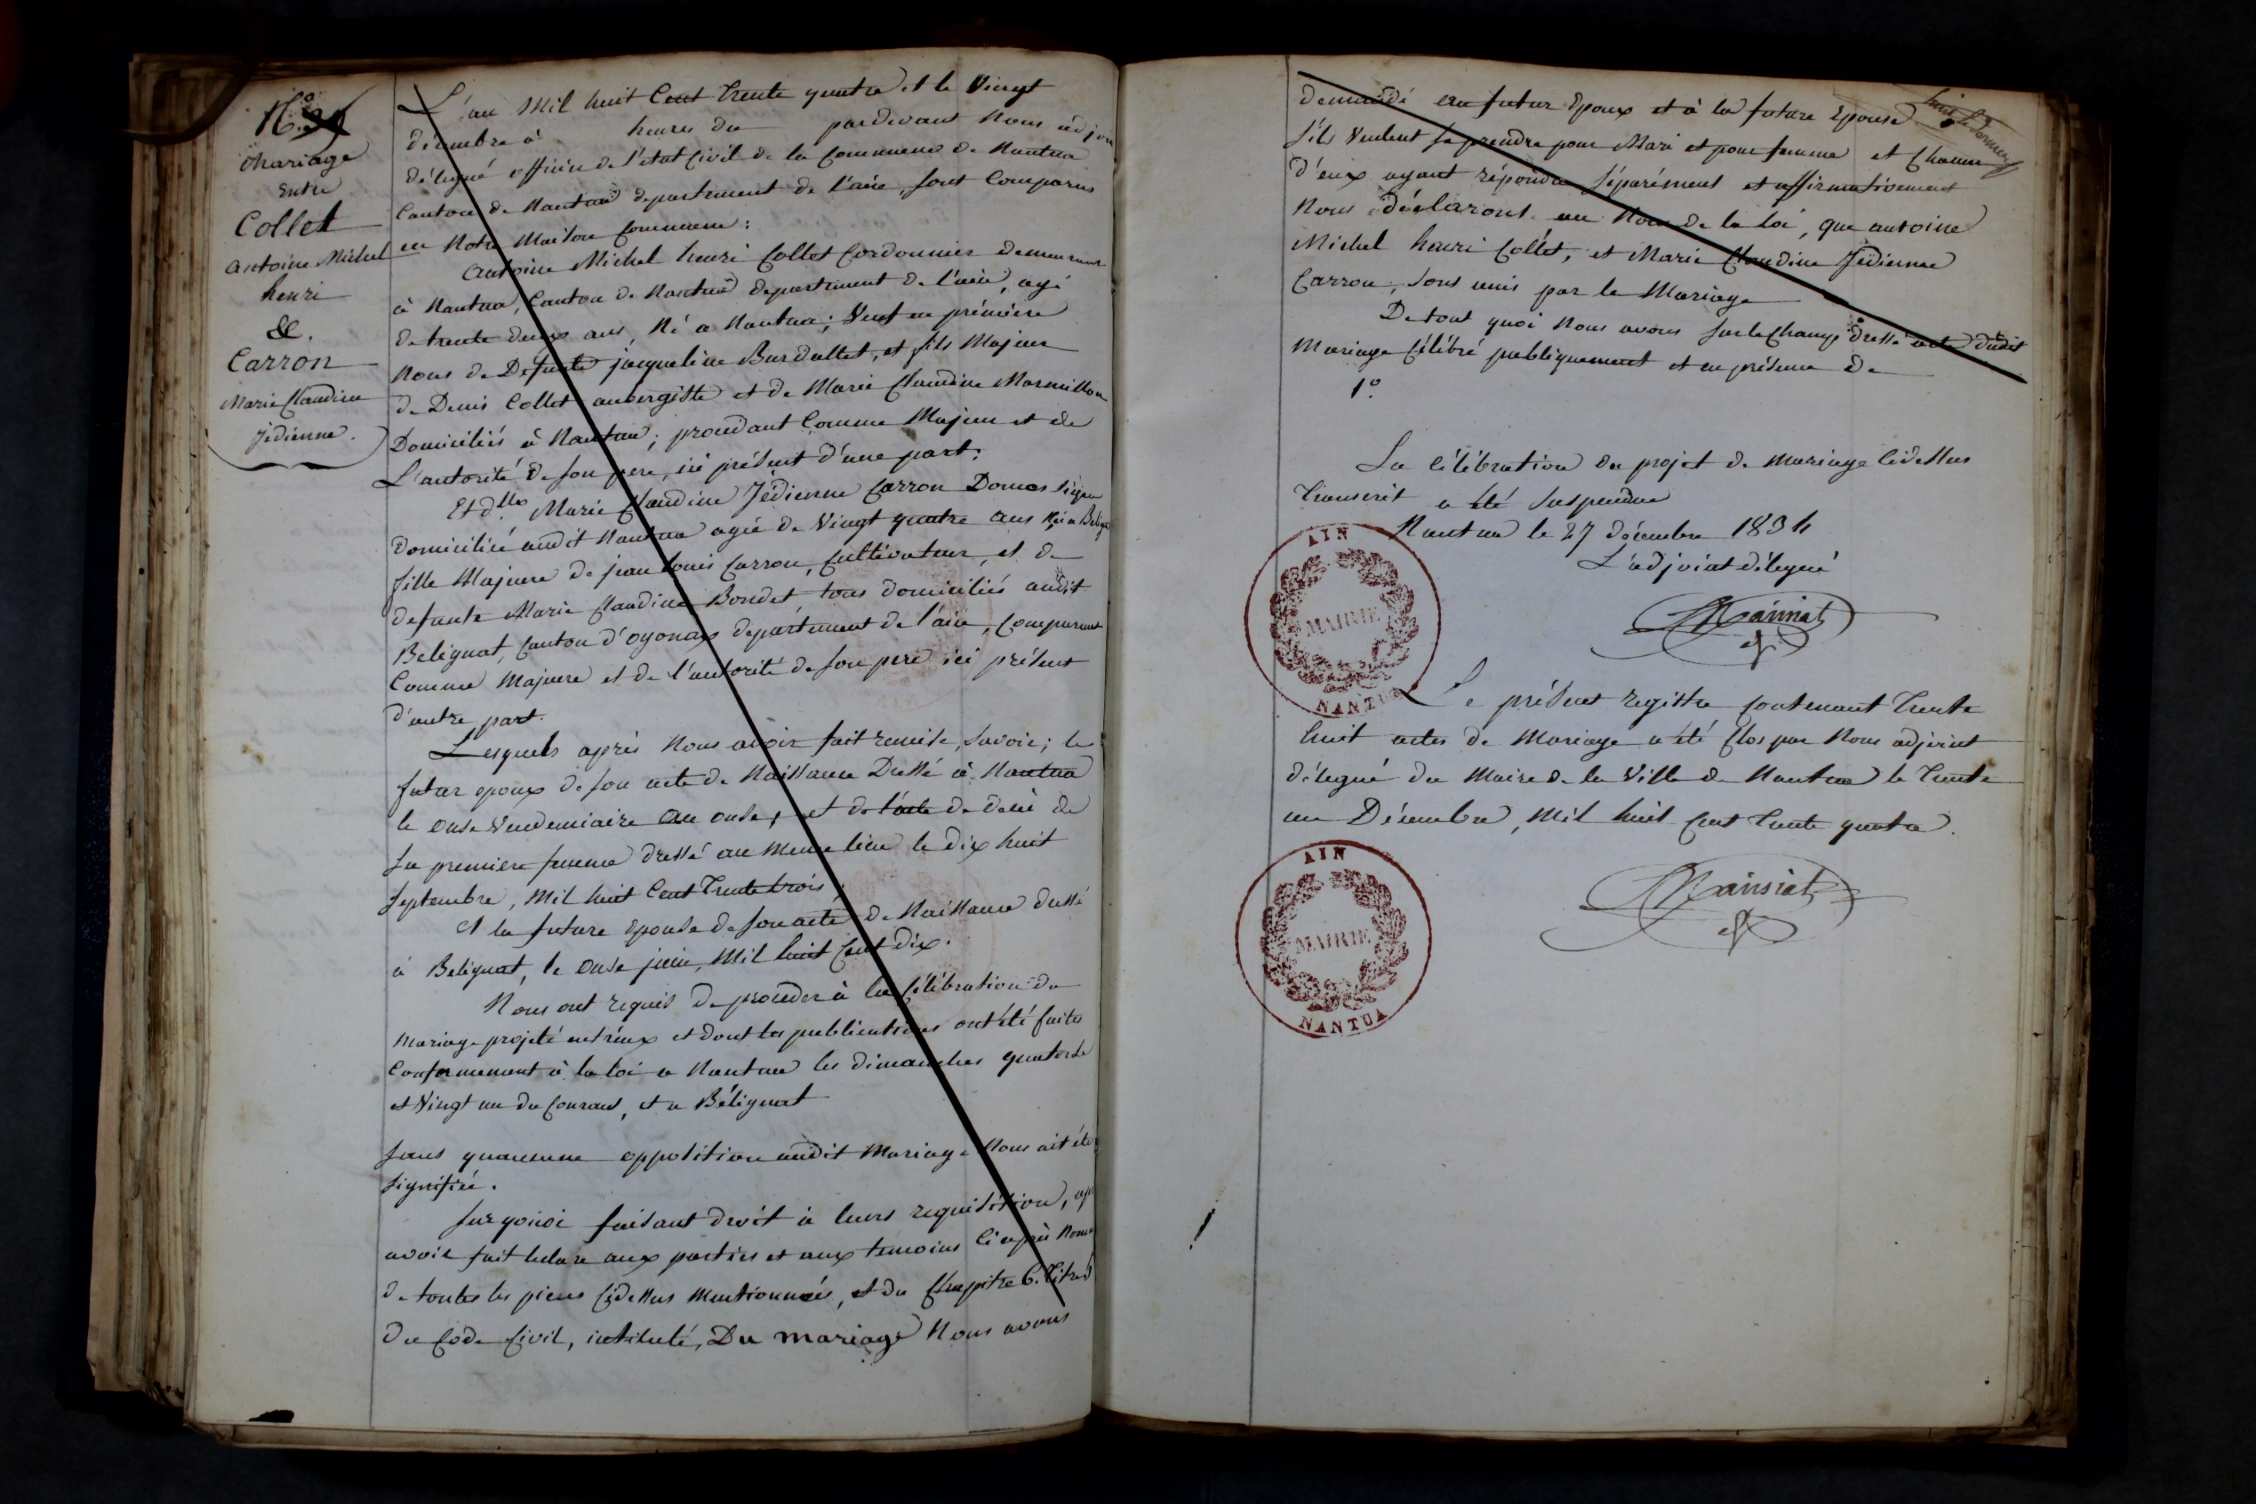 N.º 39
Mariage
Entre
Collet
Antoine Michel
henri
&.
Carron
Marie Claudine
Jédienne.
L'au Mil huit Cent trente quatre et le Vingt
décembre à heures du pardevant Nous adjoin
délégué officier de l'etat Civil de la Commune de Nantua
Canton de Nantua departement de l'ain, sont Comparus
en Notre Maison Commune:
Antoine Michel henri Collet Cordonnier demeurant
à Nantua, Canton de Nantua departement de l'ain, agé
de trente deux ans, Né a Nantua; Veuf en prémière
Noces de Defunte jacqueline Burdallet, et fils Majeur
de Denis Collet aubergiste et de Marie Claudine Marmillon
Domiciliés à Nantua; procédant Comme Majeur et de
L'autorité de son pere, ici présent d'une part.
Et dlle Marie Claudine Jédienne Carron Domestique
domiciliée audit Nantua agée de Vingt quatre ans Née a Belign
fille Majeure de jean Louis Carron, Cultivateur, et de
defunte Marie Claudine Bondet, tous domiciliés audit
Belignat, Canton d'oyonax département de l'ain, Comparant
Comme Majeure et de l'autorité de son pere ici présent
d'autre part.
Lesquels après Nous avoir fait remise, Savoir; le
futur epoux de son acte de Naissance Dressé à Nantua
le onse Vendemiaire an onse, et de l'acte de décè de
sa premiere femme dressé au Meme lieu le dix huit
Septembre, Mil huit Cent Trente trois.
Et la future Epouse de son acte de Naissance dressé
à Belignat, le onse juin, Mil huit Cent Dix.
Nous ont requis de procéder à la Célébration du
Mariage projeté entréux et dont les publications ont été faites
Conformement à la loi a Nantua les dimanches quatorse
et Vingt un du Courant, et a Bélignat
sans quaucune opposition audit Mariage Nous ait été
Signifiée.
Sur quoi faisant droit à leurs requisition, ap
avoir fait lecture aux parties et aux temoins Ci après Nom
de toutes les pieces Cidessus Mentionnées, et du Chapitre 6. Titre 5
Du Code Civil, intitulé, Du mariage Nous avons
demandé au futur Epoux et à la future Epouse
S'ils Veulent se prendre pour Mari et pour femme et Chacun
d'eux ayant répondu Séparément et affirmativement
Nous déclarons au Nom de la Loi, que antoine
Michel henri Collet, et Marie Claudine Jédienne
Carron, Sont unis par le Mariage
De tout quoi Nous avons sur le Champ dressé acte dudit
Mariage Célébré publiquement et en présence de
1.º
La célébration du projet de Mariage Cidessus
Transcrit a été Suspendue
Nantua le 27 décembre 1834
L'adjoint délégué
Mainiat
AIN
MAIRIE
NANTUA
Le présent registre Contenant Trente
huit actes de Mariage a été Clos par Nous adjoint
délégué du Maire de la Ville de Nantua le Trente
un Décembre, Mil huit Cent Trente quatre.
Mainiat
AIN
MAIRIE
NANTUA